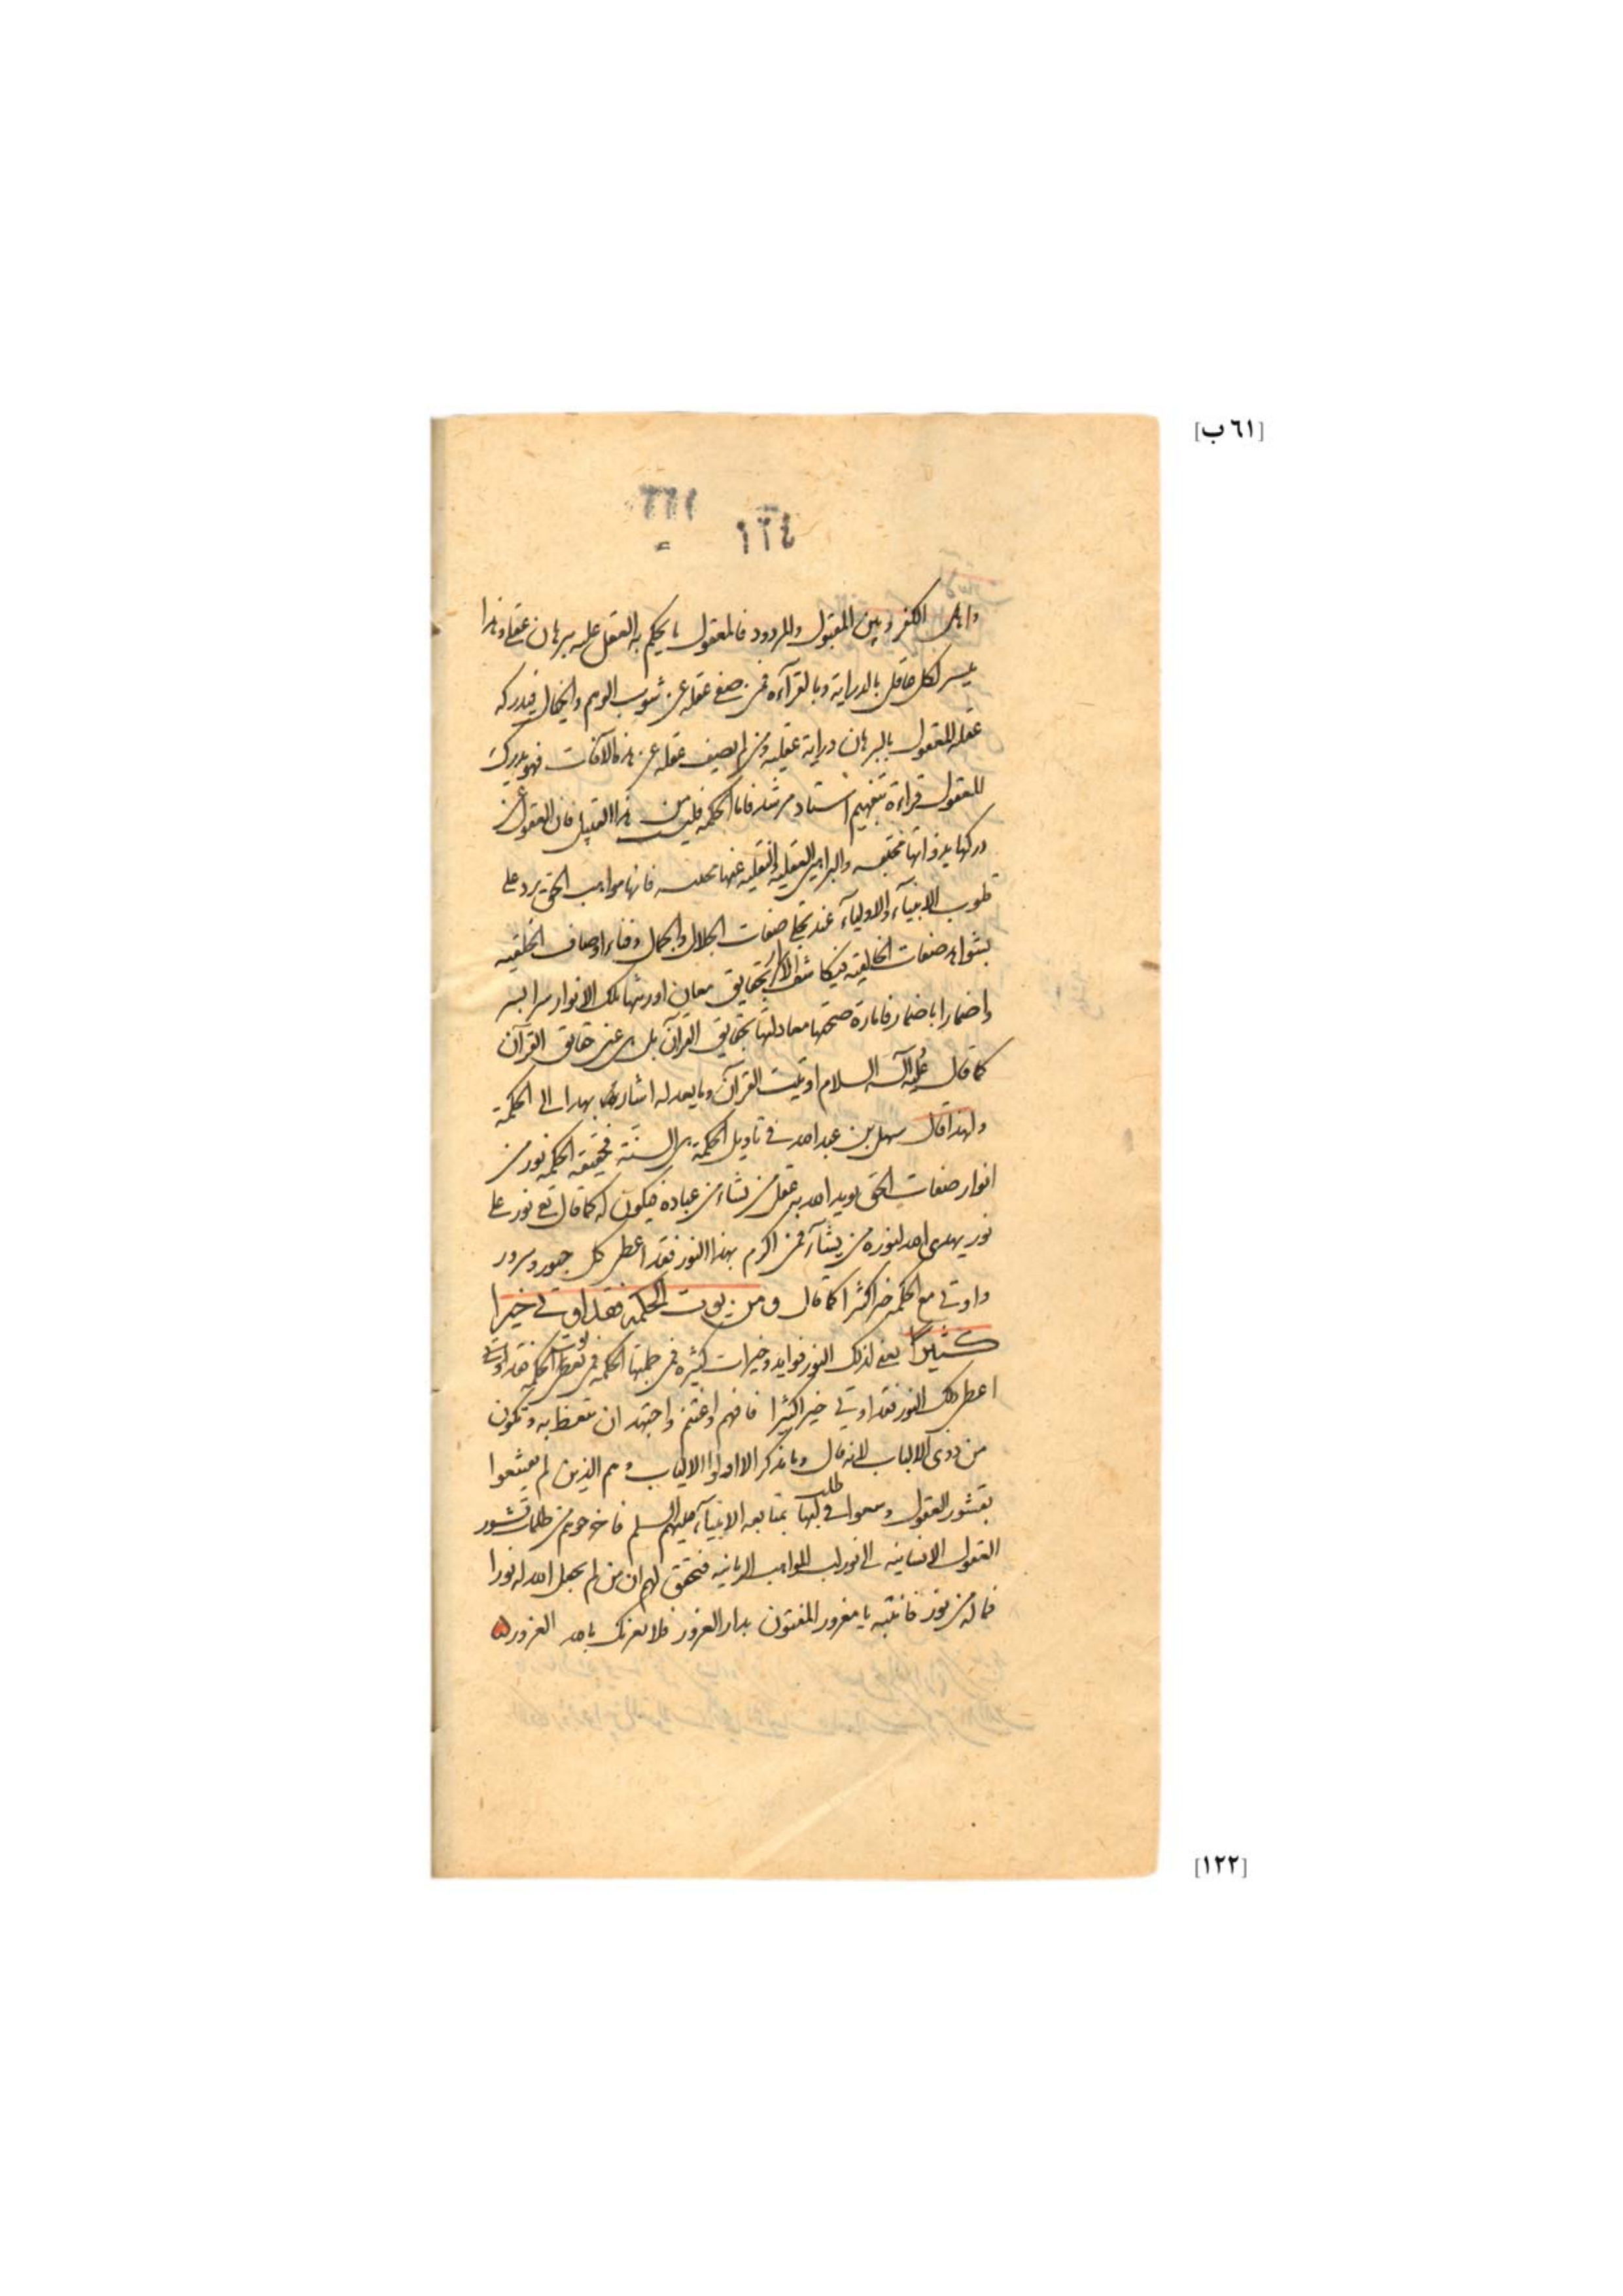 [٦١ ب]
١٢٤
واهل الكفر وبين المقبول والمردود فالمعقول ما يحكم به العقل عليه ببرهان عقلى وهذا
ميسر لكل عاقل بالدراية وبالقرآءة فمن صفى عقله عن شوب الوهم والخيال فيدركه
عقله المعقول بالبرهان دراية عقليه ومن لم يصف عقله عن هذه الآفات فهو يدرك
المعقول قراءة بتفهيم استاد مرشد فاما الحكمة فليست من هذا القبيل فان العقول عن
دركها بذواتها محتجبه والبراهين العقليه والنقليه عنها فانها مواهب الحق يرد على
قلوب الانبيآء والاوليآء عند تجلى صفات الجلال والجمال وفناء اوصاف الخلقيه
بشواهد صفات الخالقيه فيكاشف الاسرار بحقايق معان اورثتها تلك الانوار سرا بسر
واضمارا باضمار فامارة صحتها معادلتها بحقايق القرآن بل هى عين حقايق القرآن
كما قال عليه السلام اوتيت القرآن وما يعدله اشار بهذا الى الحكمة
ولهذا قال سهل بن عبد الله فى تاويل الحكمة هى السنة فحقيقة الحكمة نور من
انوار صفات الحق يويد الله به عقل من يشاء من عباده فيكون له كما قال تع نور على
نور يهدى الله لنوره من يشآء فمن اكرم بهذا النور فقد اعطى كل حبور وسرور
واوتى مع الحكمة خيرا كثيرا كما قال ومن يوت الحكمة فقد اوتى خيرا
كثيرا يعنى لذلك النور فوايد وخيرات كثيرة فمن جملتها الحكمة فمن يوت الحكمة فقد اوتى
اعطى ذلك النور فقد اوتى خيرا كثيرا فافهم واغتنم واجتهد ان تتعظ به وتكون
من ذوى الالباب لانه قال وما يذكر الا اولوا الالباب وهم الذين لم يقنعوا
بقشور العقول وسعوا فى طلب لبها بمتابعه الانبيآء عليهم السلم فاخرجوهم من ظلمات قشور
العقول الانسانيه الى نور لب المواهب الربانيه فتحقق لهم ان من لم يجعل الله له نورا
فما له من نور فانتبه يا مغرور المفتون بدار الغرور فلا يغرنك بالله الغرور
[١٢٢]